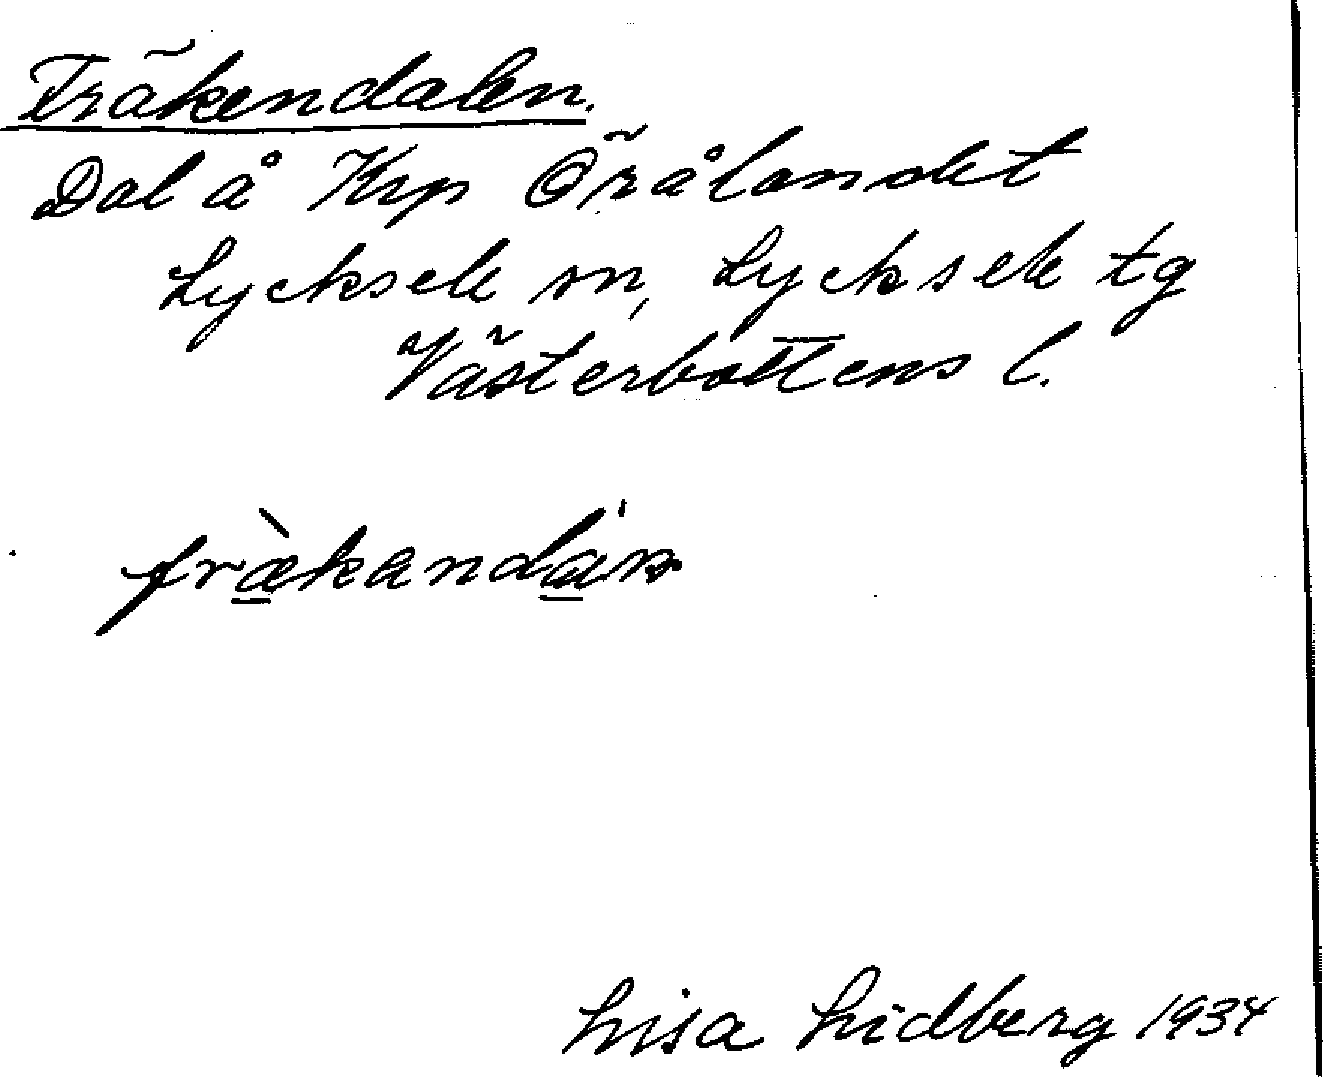 Fräkendalen.
Dal å Krp Örålandet
Lycksele sn, Lycksele tg
Västerbottens l.
frækandan
Lisa Lidberg 1934